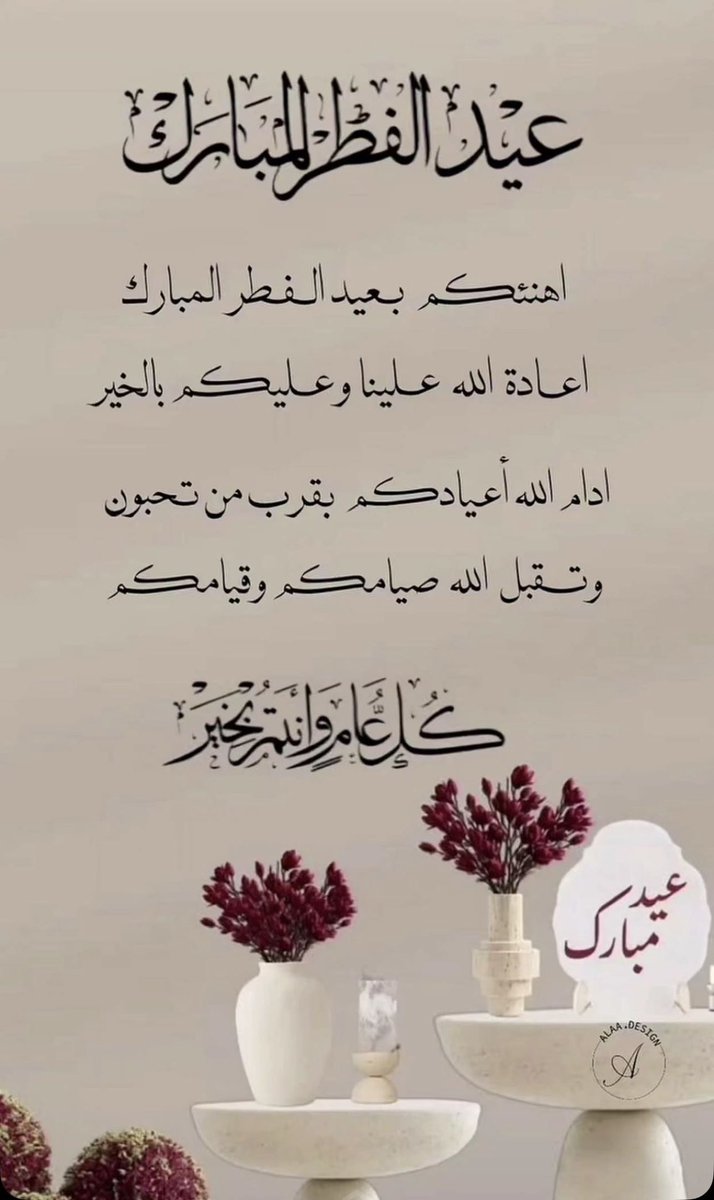 عيد الفطر المبارك
اهنئكم بعيد الفطر المبارك
اعادة الله علينا وعليكم بالخير
ادام الله أعيادكم بقرب من تحبون
وتقبل الله صيامكم وقيامكم
كُل عَّام وَانتَم بخَير
عيد
مبارك
ALAA.DESIGN
A